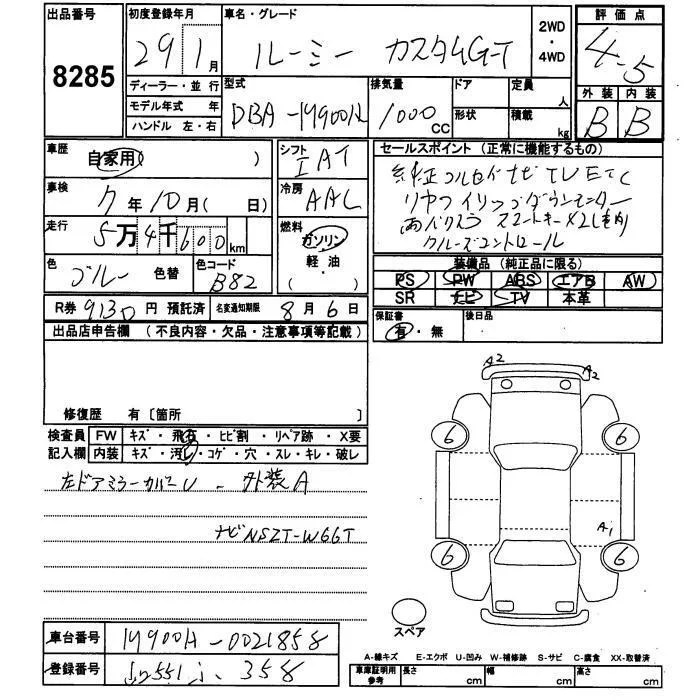 出品番号
8285
初度登録年月
29 1月
車名・グレード
ルーミー カスタムG-T
2WD
・
4WD
評価点
4.5
外装 内装
B B
ディーラー・並行
モデル年式 年
ハンドル 左・右
型式
DBA-M900A
排気量
1000
CC
ドア
形状
定員
人
積載
kg
車歴
自家用( )
シフト
IAT
車検
7年10月( 日)
冷房
AAC
走行
5万4千600km
燃料
ガソリン
軽・油
( )
色
ブルー 色替
色コード
B82
セールスポイント(正常に機能するもの)
純正フルセグナビTV ETC
リヤフリップダウンモニター
両パワスラ スマートキー×2
クルーズコントロール
装備品(純正品に限る)
PS PW ABS エアB AW
SR ナビ TV 本革
R券 9130円 預託済 名変通知期限 8月6日
保証書
有・無
後日品
出品店申告欄 (不良内容・欠品・注意事項等記載)
修復歴 有〔箇所 〕
検査員 FW キズ・飛石・ヒビ割・リペア跡・X要
記入欄 内装 キズ・汚レ・コゲ・穴・スレ・キレ・破レ
左ドアミラーカバーU - 外装A
ナビNSZT-W66T
A2
A2
6 6
A1
6 6
スペア
車台番号 M900A-0021858
登録番号 551 358
A-線キズ E-エクボ U-凹み W-補修跡 S-サビ C-腐食 XX-取替済
車庫証明用
参考
長さ cm 幅 cm 高さ cm